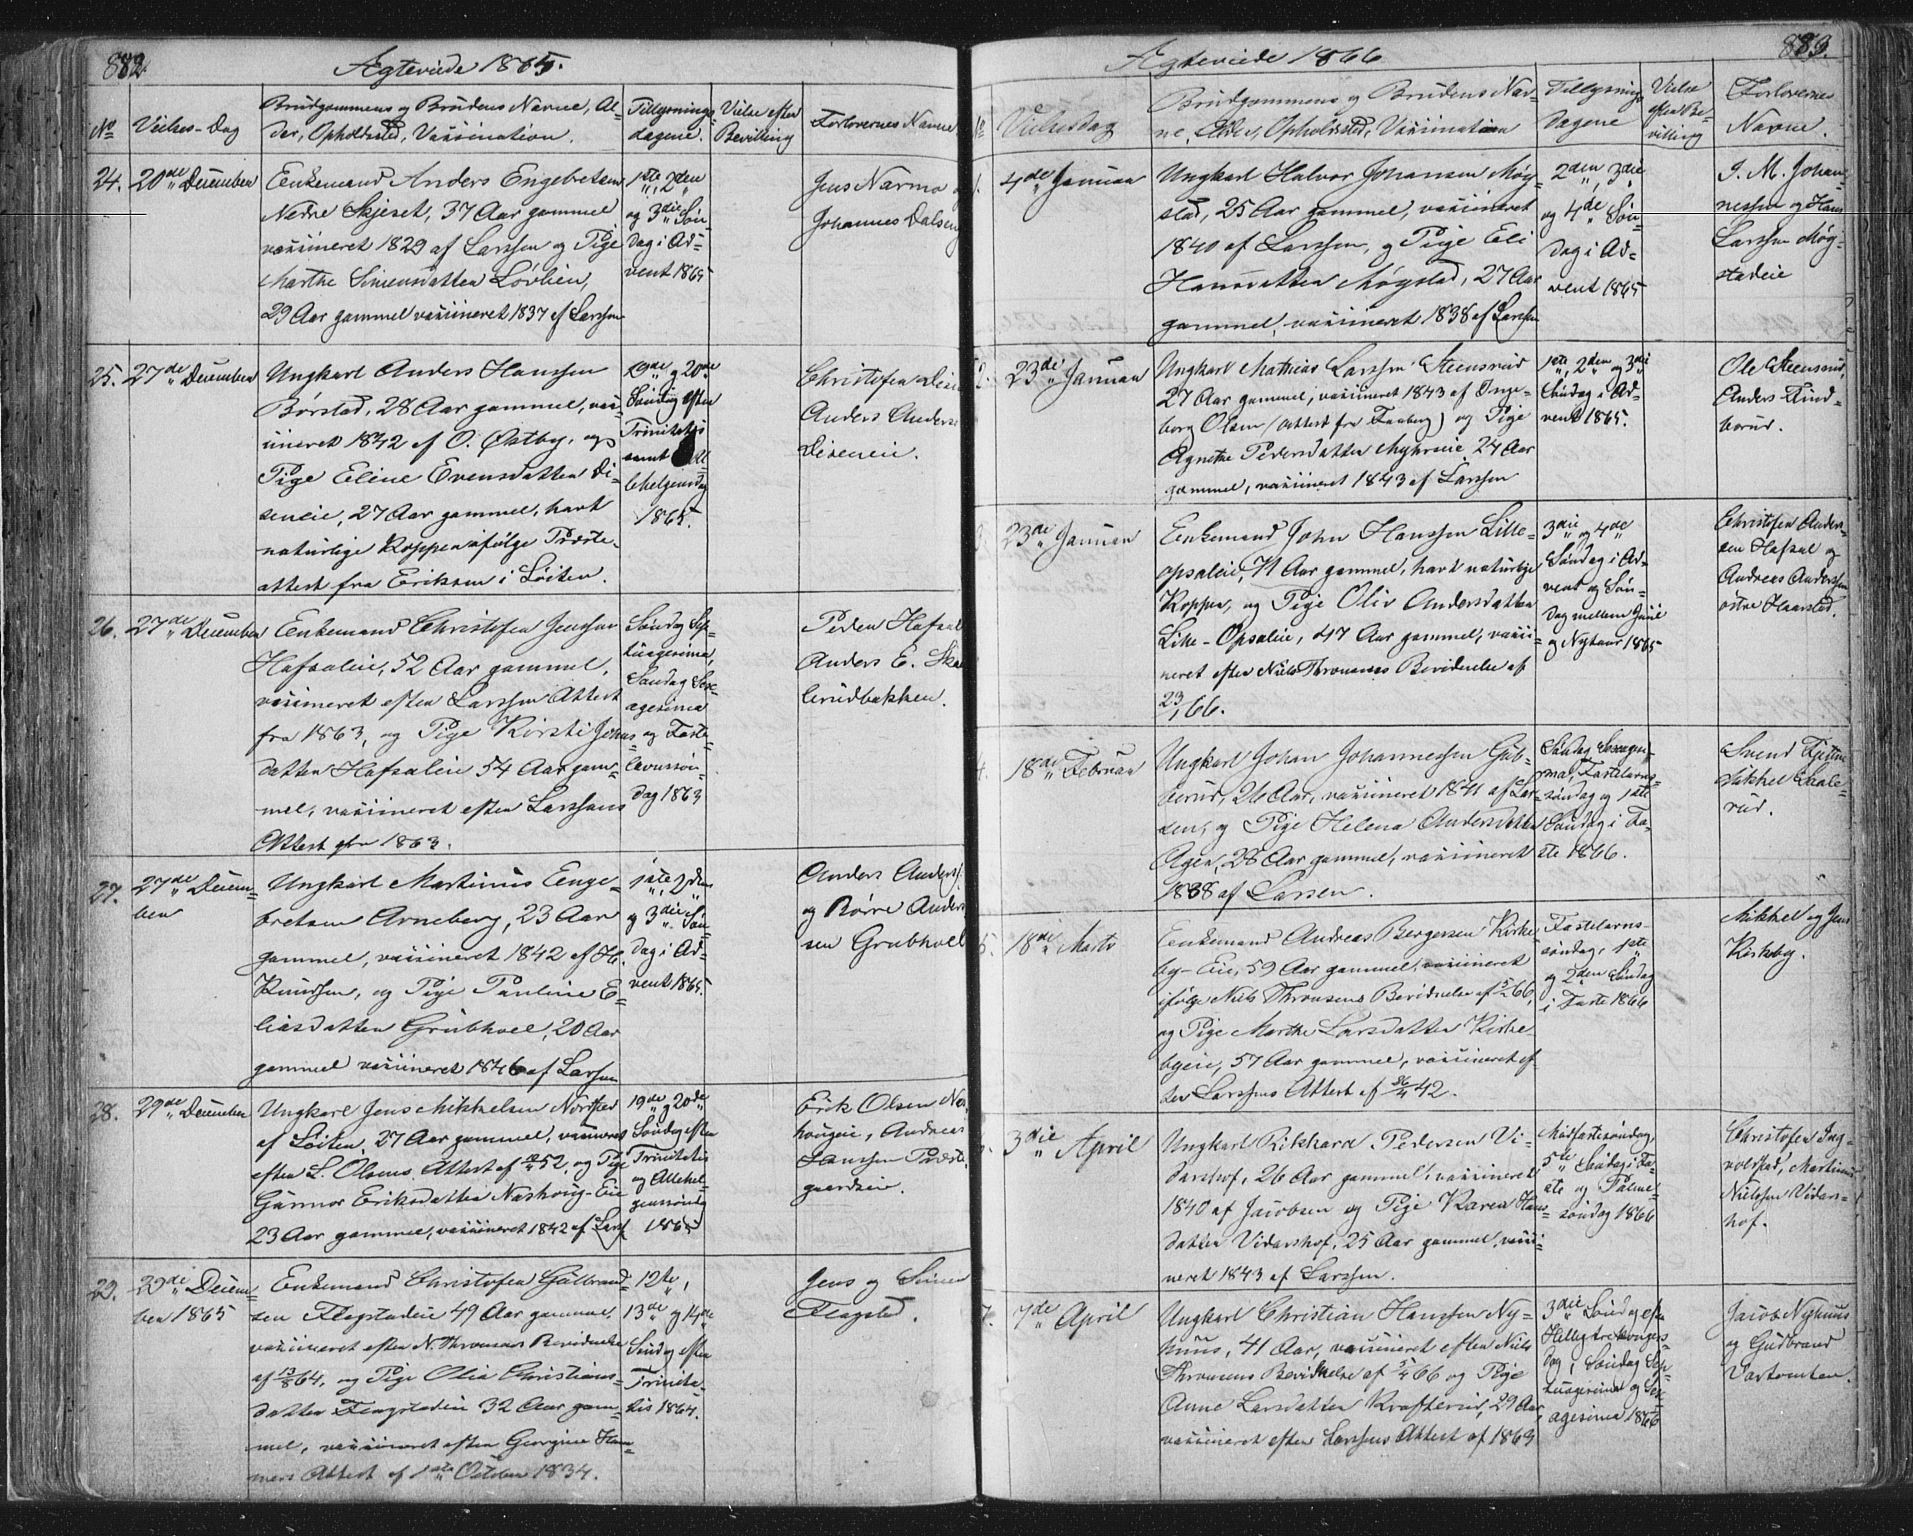 882.
Agteviede 1865.
No
Vielses-Dag
Brudgommens og Brudens Navne, Al-
der, Opholdsted, Vaxination.
Tillysnings-
dagene.
Vielse efter
Bevilling
Forlovernes Navne
24.
20de December
Enkemand Anders Engebretsen
Nedre Skjeset, 37 Aar gammel
vaxineret 1829 af Larssen og Pige
Marthe Simensdatter Lövlien,
29 Aar gammel vaxineret 1837 af Larssen
1ste, 2den
og 3die Sön-
dag i Ad-
vent 1865
Jens Narmo
Johannes Dalseng
25.
27de December
Ungkarl Anders Hanssen
Börstad, 28 Aar gammel, vax-
ineret 1842 af O. Østby, og
Pige Eline Evensdatter Di-
seneie, 27 Aar gammel, havt
naturlige Kopper ifölge Præste-
attest fra Eriksen i Löiten.
19de og 20de
Söndag efter
Trinitatis
samt Al-
lehelgensdag
1865.
Christofer
Anders Anders
Diseneie.
26.
27de December
Enkemand Christofer Jenssen
Hafsaleie, 52 Aar gammel,
vaxineret efter Larssens Attest
fra 1863, og Pige Körsti Johns
datter Hafsaleie 54 Aar gam-
mel, vaxineret efter Larssens
Attest fra 1863.
Söndag Sep-
tuagesima,
Söndag Sex-
agesima
og Faste-
lavnssön-
dag 1863
Peder Hafsal
Anders E. Ska
lerudbakken.
27.
27de Decem-
ber
Ungkarl Martinus Enge-
bretsen Arneberg, 23 Aar
gammel, vaxineret 1842 af H.
Knudsen, og Pige Pauline E-
liasdatter Grubhoel, 20 Aar
gammel vaxineret 1846 af Larsen
1ste, 2den
og 3die Sön-
dag i Ad-
vent 1865.
Anders Anders
og Börre Anders
sen Grubhoel
28.
29de December
Ungkarl Jens Mikkelsen Nordsted
af Löiten, 27 Aar gammel, vaxineret
efter L. Olsens Attest af 52, og Pige
Gunnor Eriksdatter Nashoug-Eie
23 Aar gammel, vaxineret 1842 af Larss.
19de og 20de
Söndag efter
Trinitatis
og Allehel-
genssöndag
1865
Erik Olsen Nas
hougeie, Andreas
Hanssen Præste-
gaardseie.
29.
29de Decem-
ber 1865
Enkemand Christofer Gulbrand-
sen Flagstadeie 49 Aar gammel,
vaxineret efter N. Thronsens Bevidnelse
af 13/8 64, og Pige Olia Christians-
datter Flagstadeie 32 Aar gam-
mel, vaxineret efter Georgine Ham-
mers Attest af 1ste October 1834.
12te,
13de og 14de
Söndag efter
Trinita-
tis 1864.
Jens og Simen
Flagsted.
883.
Agteviede 1866
No
Vielsesdag
Brudgommens og Brudens Nav-
ne, Alder, Opholdsted, Vaxination
Tillysnings
dagene
Vielse
efter Be-
villing
Forlovernes
Navne.
1.
4de Januar
Ungkarl Halvor Johansen Møg-
stad, 25 Aar gammel, vaxineret
1840 af Larssen, og Pige Eli
Hansdatter Møgstad, 27 Aar
gammel, vaxineret 1838 af Larssen
2den, 3die
og 4de Sön-
dag i Ad-
vent 1865
J. M. Johan-
nessen og Hans
Larssen Møg-
stadeie
2.
23di Januar
Ungkarl Mathias Larssen Steensrud
27 Aar gammel, vaxineret 1843 af Inge-
borg Olsen (Attest fra Faaberg) og Pige
Agnethe Pedersdatter Myhreeie 24 Aar
gammel, vaxineret 1843 af Larssen
1ste, 2den og 3die
Söndag i Ad-
vent 1865.
Ole Steensrud,
Anders Find-
borud.
3.
23de Januar
Enkemand John Hanssen Lille-
opsaleie, 71 Aar gammel, havt naturlige
Kopper, og Pige Oliv Andersdatter
Lille-Opsaleie, 47 Aar gammel, vaxi-
neret efter Niels Thronsens Bevidnelse af
23/1 66.
3die og 4de
Söndag i Ad-
vent og Sön-
dag mellem Juul
og Nytaar 1865
Christofer Anders-
sen Hafsal og
Andreas Anderssen
östre Haarstad.
4.
18de Februar
Ungkarl Johan Johannessen Gub-
berud, 26 Aar, vaxineret 1841 af Lar-
sen, og Pige Helena Andersdatter
Ager, 28 Aar gammel, vaxineret
1838 af Larsen.
Söndag Sexages-
ima, Fastelavns-
söndag og 1ste
Söndag i Fa-
ste 1866.
Svend
Mikkel Skaale-
rud.
5.
18de Marts
Enkemand Andreas Bergersen Kirke-
by-Eie, 59 Aar gammel, vaxineret
ifölge Niels Thronsens Bevidnelse af 5/2 66,
og Pige Marthe Larsdatter Kirke
byeie, 57 Aar gammel, vaxineret ef-
ter Larssens Attest af 26/4 42.
Fastelavns-
söndag, 1ste
og 2den Söndag
i Faste 1866
Mikkel og Jens
Kirkeby.
6.
3die April
Ungkarl Rikhard Pedersen Vi-
darshof, 26 Aar gammel, vaxineret
1840 af Jacobsen og Pige Karen Hans-
datter Vidarshof, 25 Aar gammel, vaxi-
neret 1843 af Larssen.
Midfastesöndag,
5te Söndag i Fa-
ste og Palme-
söndag 1866
Christofer Ing-
volstad, Martinus
Nielssen Vidars-
hof.
7.
7de April
Ungkarl Christian Hanssen Ny-
huus, 41 Aar, vaxineret efter Niels
Thronsens Bevidnelse af 5/4 66 og Pige
Anne Larsdatter Krafterud, 29 Aar
vaxineret efter Larssens Attest af 1863
3die Söndag efter
Helligtrekonger
dag, Söndag Sep-
tuagesima og Sex-
agesima 1866
Jacob Nyhuus
og Gudbrand
Vastomten.